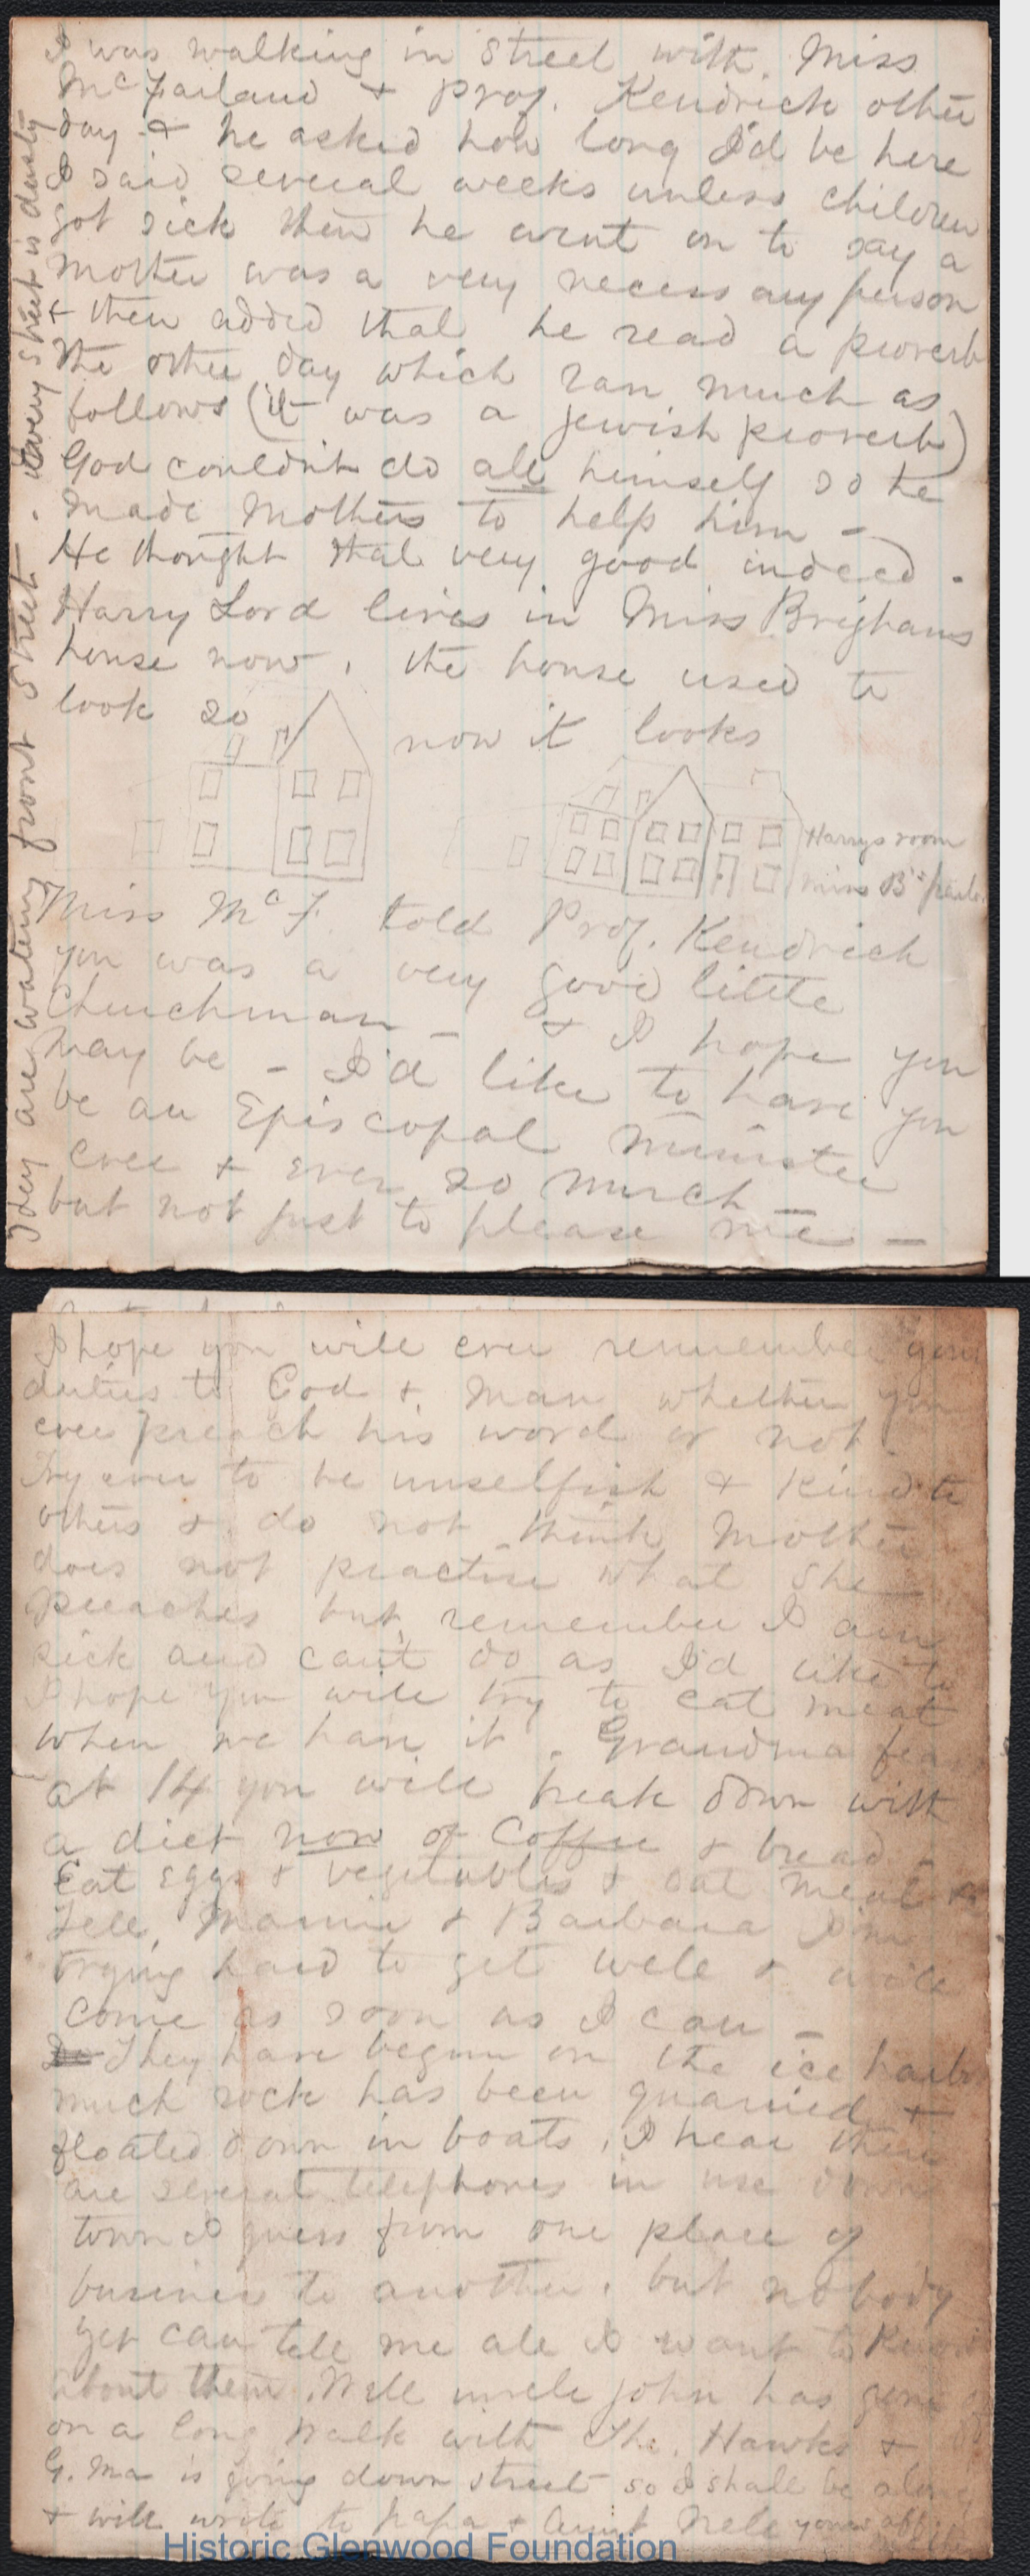 I was walking in Street with Miss
McFarland & Prof. Kendrick other
day & he asked how long I'd be here
I said several weeks unless children
got sick then he went on to say a
mother was a very necessary person
& then added that he read a proverb
the other day which ran much as
follows (it was a jewish proverb)
God couldn't do all himself so he
made Mothers to help him -
He thought that very good indeed.
Harry Lord lives in Miss Brighams
house now, the house used to
look so
now it looks
Harrys room
Miss B's parlor
Miss McF. told Prof. Kendrick
you was a very good little
Churchman - & I hope you
may be - I'd like to have you
be an Episcopal minister
ever & ever so much
but not just to please me -
They are watering front street. Every street is dusty
I hope you will ever remember your
duties to God & man whether you
ever preach his word or not.
Try ever to be unselfish & kind to
others & do not think Mother
does not practise what she
preaches but remember I am
sick and can't do as I'd like to
I hope you will try to eat meat
when we have it. Grandma fears
at 14 you will break down with
a diet now of Coffee & bread.
Eat eggs & vegetables & eat meat
Tell, Mamie & Barbara I'm
trying hard to get well & will
come as soon as I can -
They have begun on the ice harbor
much rock has been quarried &
floated down in boats. I hear there
are several telephones in use down
town I guess from one place of
business to another, but nobody
yet can tell me all I want to know
about them. Well uncle john has gone
on a long walk with Th. Hawks &
G. Ma is going down street so I shall be alone
& will write to papa & Aunt Nele your aff
Historic Glenwood Foundation